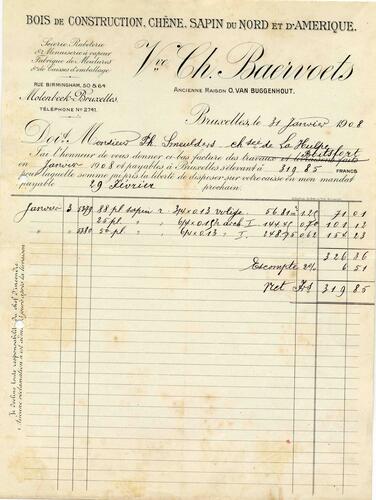 BOIS DE CONSTRUCTION, CHÊNE, SAPIN DU NORD ET D'AMERIQUE.
Scierie, Raboterie
& Menuiserie à vapeur
Fabrique de Moulures
& de Caisses d'emballage
RUE BIRMINGHAM, 50 & 64
Molenbeek-Bruxelles
TÉLÉPHONE No 2741.
Vve Ch. Baervoets
ANCIENNE MAISON O. VAN BUGGENHOUT.
Bruxelles, le 31 Janvier 1908
Doit Monsieur Th. Smeulders chsée de La Hulpe
Boitsfort
J'ai l'honneur de vous donner ci-bas facture des travaux et livraisons faits
en Janvier 1908 et payables à Bruxelles s'élevant à 319.85 FRANCS
pour laquelle somme j'ai pris la liberté de disposer sur votre caisse en mon mandat
payable 29 février prochain
Janvier 3 88 pl sapin 3/4 x 0.13 volige 56.81 1.25 71.01
25 pl 6/4 x 0.18 I 144.45 0.70 101.12
50 pl 6/4 x 0.13 I 248.75 0.62 154.23
326.36
Escompte 2% 6.51
Net Frs 319.85
Je décline toute responsabilité du chef d'incendie
Aucune réclamation n'est admise 8 jours après la livraison